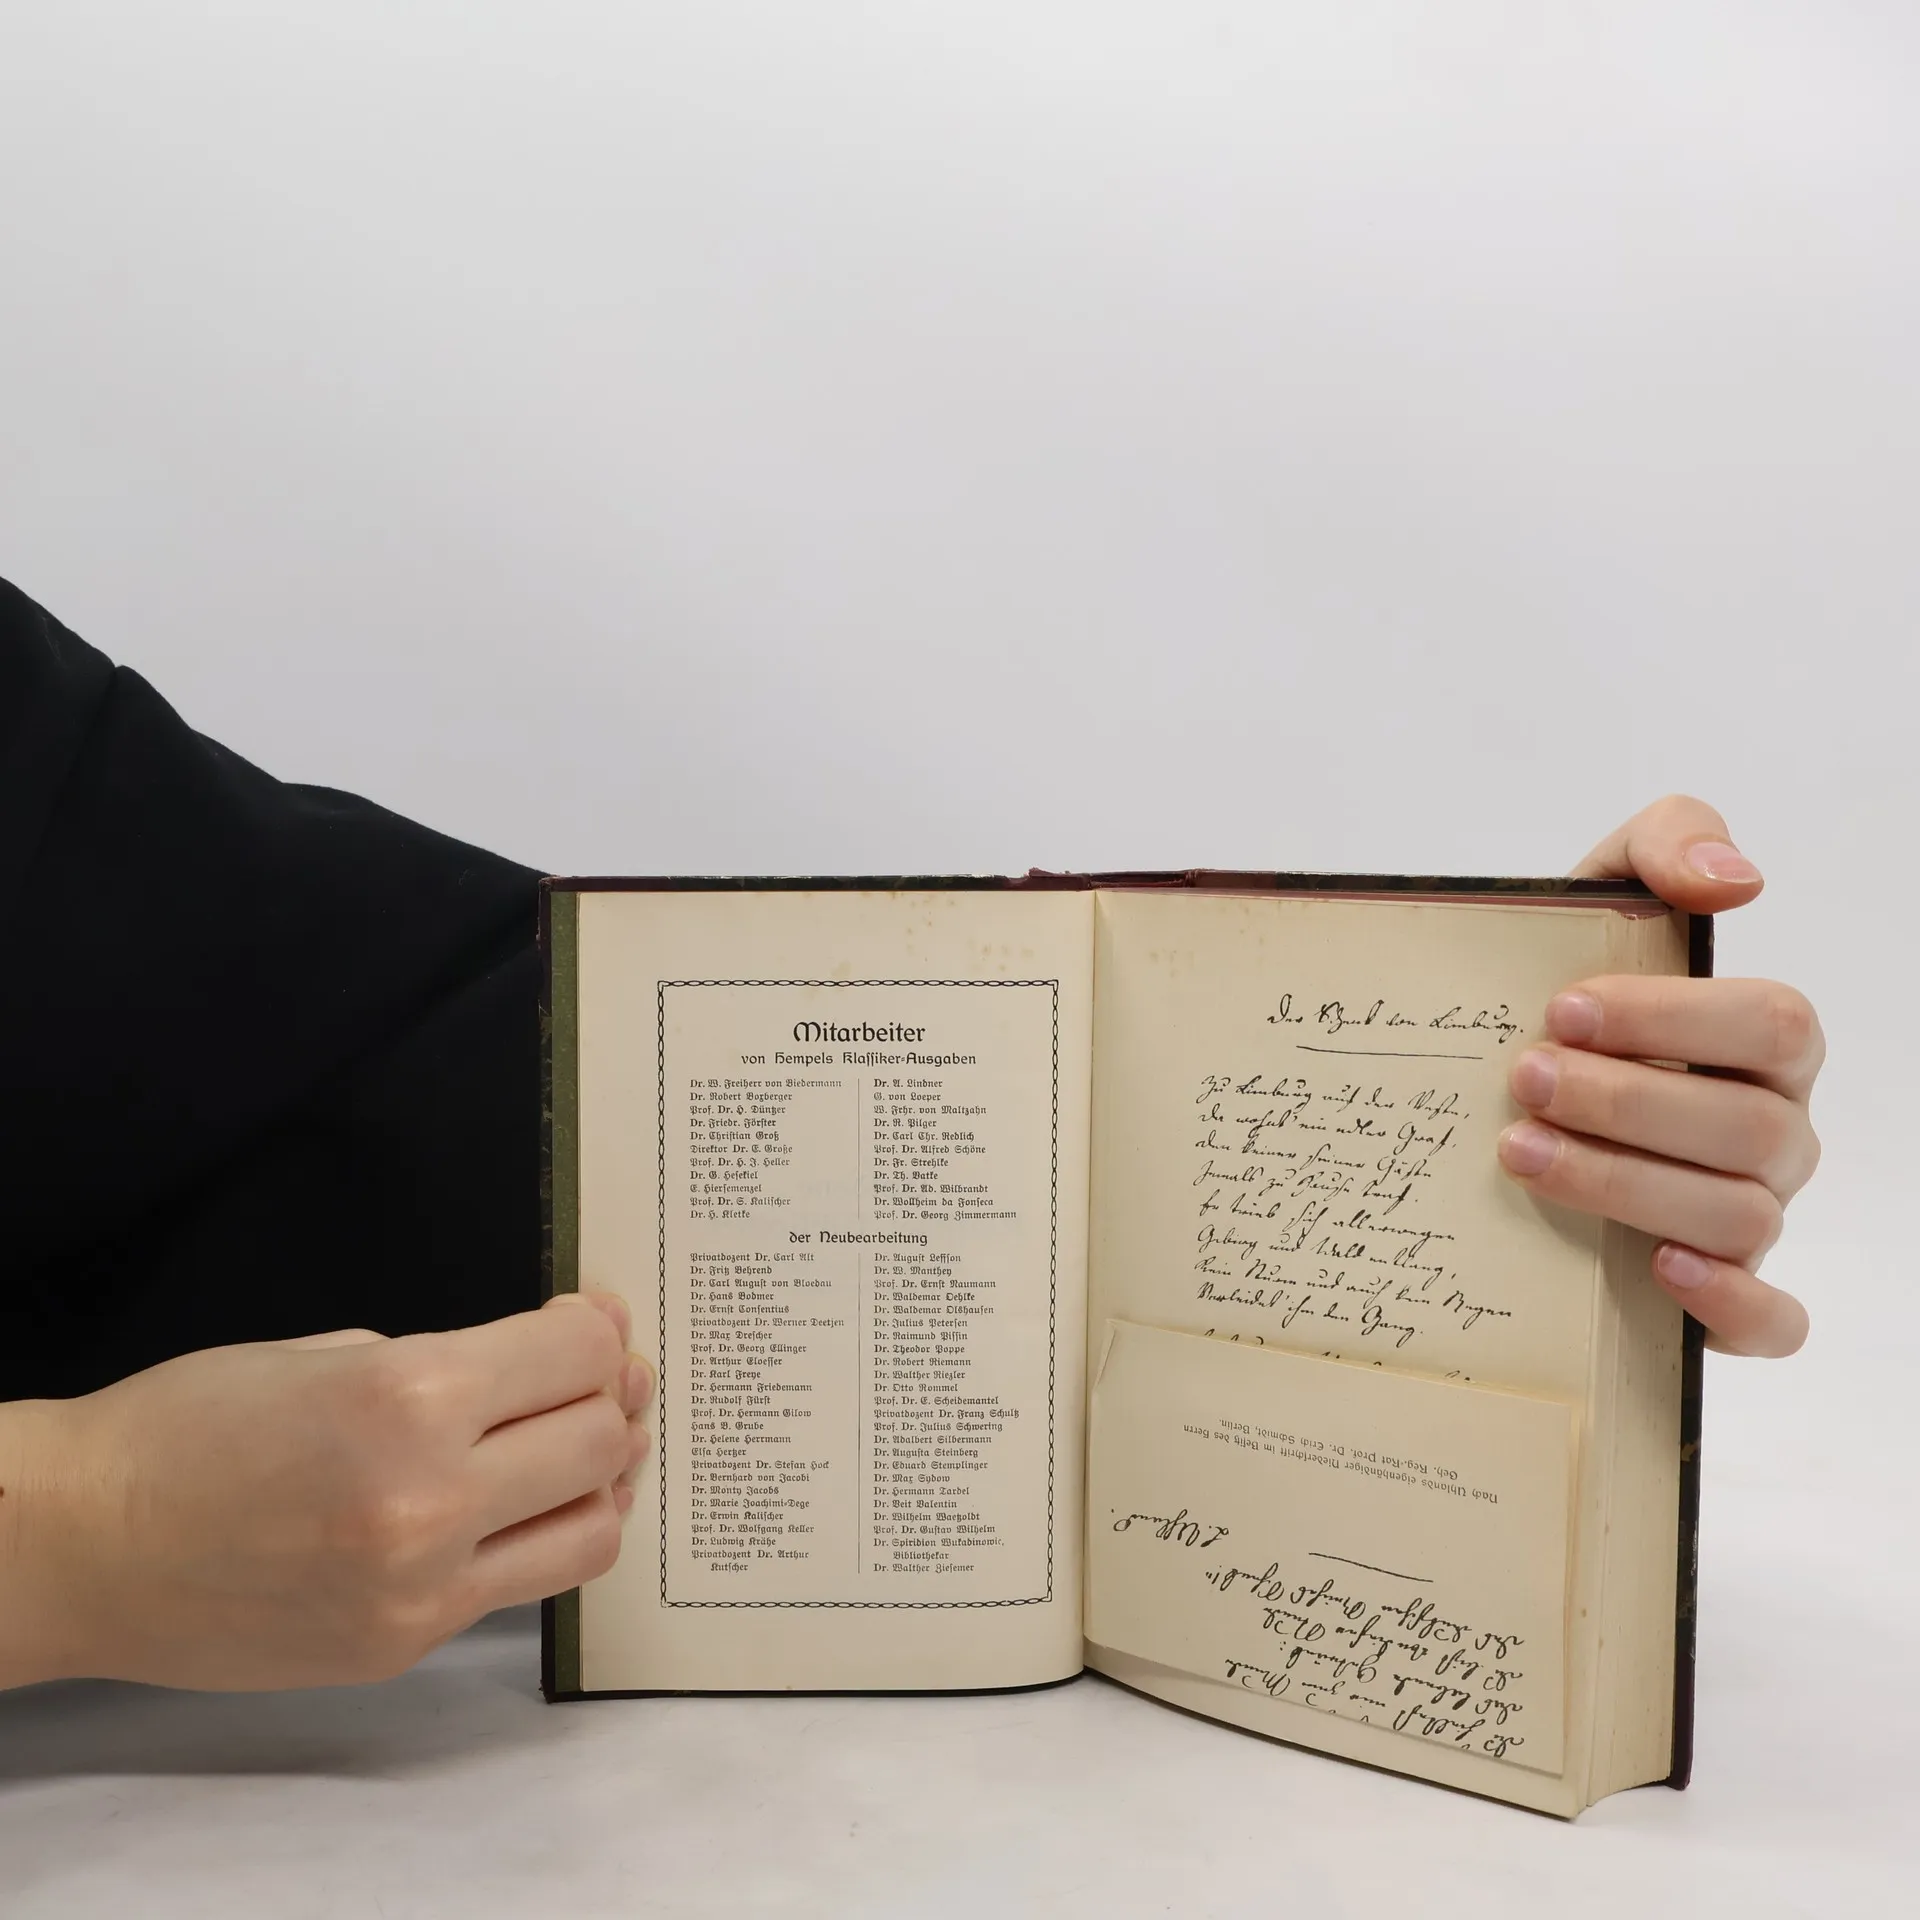 Mitarbeiter
von Hempels Klassiker-Ausgaben
Dr. W. Freiherr von Biedermann
Dr. Robert Boxberger
Prof. Dr. H. Düntzer
Dr. Friedr. Förster
Dr. Christian Groß
Direktor Dr. E. Große
Prof. Dr. H. J. Heller
Dr. G. Hesekiel
E. Hiersemenzel
Prof. Dr. S. Kalischer
Dr. H. Kletke
Dr. A. Lindner
G. von Loeper
W. Frhr. von Maltzahn
Dr. R. Pilger
Dr. Carl Chr. Redlich
Prof. Dr. Alfred Schöne
Dr. Fr. Strehlke
Dr. Th. Vatke
Prof. Dr. Ad. Wilbrandt
Dr. Wollheim da Fonseca
Prof. Dr. Georg Zimmermann
der Neubearbeitung
Privatdozent Dr. Carl Alt
Dr. Fritz Behrend
Dr. Carl August von Bloedau
Dr. Hans Bodmer
Dr. Ernst Consentius
Privatdozent Dr. Werner Deetjen
Dr. Max Drescher
Prof. Dr. Georg Ellinger
Dr. Arthur Eloesser
Dr. Karl Freye
Dr. Hermann Friedemann
Dr. Rudolf Fürst
Prof. Dr. Hermann Gilow
Hans B. Grube
Dr. Helene Herrmann
Elsa Hertzer
Privatdozent Dr. Stefan Hock
Dr. Bernhard von Jacobi
Dr. Monty Jacobs
Dr. Marie Joachimi-Dege
Dr. Erwin Kalischer
Prof. Dr. Wolfgang Keller
Dr. Ludwig Krähe
Privatdozent Dr. Arthur
Kutscher
Dr. August Leffson
Dr. W. Manthey
Prof. Dr. Ernst Naumann
Dr. Waldemar Oehlke
Dr. Waldemar Olshausen
Dr. Julius Petersen
Dr. Raimund Pissin
Dr. Theodor Poppe
Dr. Robert Riemann
Dr. Walther Riezler
Dr. Otto Rommel
Prof. Dr. E. Scheidemantel
Privatdozent Dr. Franz Schultz
Prof. Dr. Julius Schwering
Dr. Adalbert Silbermann
Dr. Augusta Steinberg
Dr. Eduard Stemplinger
Dr. Max Sydow
Dr. Hermann Tardel
Dr. Veit Valentin
Dr. Wilhelm Waetzoldt
Prof. Dr. Gustav Wilhelm
Dr. Spiridion Wukadinowic,
Bibliothekar
Dr. Walther Ziesemer
Der Schenk von Limburg.
Zu Limburg auf der Veste,
Da wohnt' ein edler Graf,
Den keiner seiner Gäste
Jemals zu Hause traf.
Er trieb sich allerwegen
Gebirg und Wald entlang,
Kein Sturm und auch kein Regen
Verleidet' ihm den Gang.
Du fällest mir zum Munde
das lebende Getränk:
du bist von dieser Stunde
das deutschen Reiches Schenk!"
L. Uhland.
Nach Uhlands eigenhändiger Niederschrift im Besitz des Herrn
Geh. Reg.-Rat Prof. Dr. Erich Schmidt, Berlin.